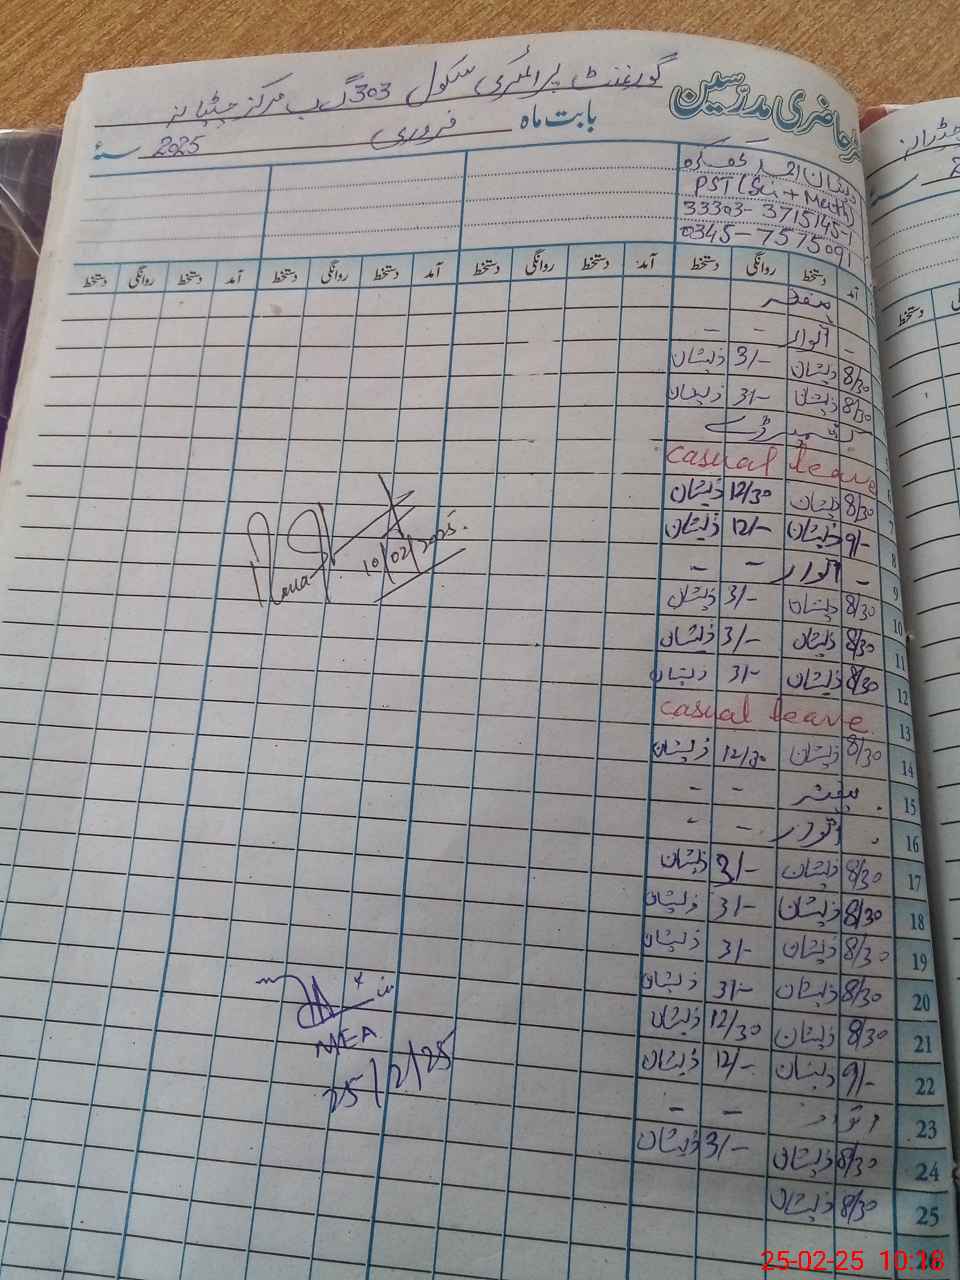 حاضری مدرسین گورنمنٹ پرائمری سکول 303 گ ب مرکز
بابت ماہ فروری 2025 سنہ
ذیشان
PST (Sci + Math)
33303-3715145-1
0345-7575091
آمد دستخط روانگی دستخط آمد دستخط روانگی دستخط آمد دستخط روانگی دستخط آمد دستخط روانگی دستخط
ہفتہ
- اتوار - -
8/30 ذیشان 3/- ذیشان
8/30 ذیشان 3/- ذیشان
کشمیر ڈے
casual leave
6 8/30 ذیشان 12/30 ذیشان
7 9/- ذیشان 12/- ذیشان
8 - اتوار - -
9 8/30 ذیشان 3/- ذیشان
10 8/30 ذیشان 3/- ذیشان
11 8/30 ذیشان 3/- ذیشان
12 casual leave
13 8/30 ذیشان 12/30 ذیشان
14 ہفتہ - -
15 اتوار - -
16 8/30 ذیشان 3/- ذیشان
17 8/30 ذیشان 3/- ذیشان
18 8/30 ذیشان 3/- ذیشان
19 8/30 ذیشان 3/- ذیشان
20 8/30 ذیشان 12/30 ذیشان
21 9/- ذیشان 12/- ذیشان
22 اتوار - -
23 8/30 ذیشان 3/- ذیشان
24 8/30 ذیشان
25
10/02/2025.
MEA
25/2/25
دستخط
25-02-25 10:18